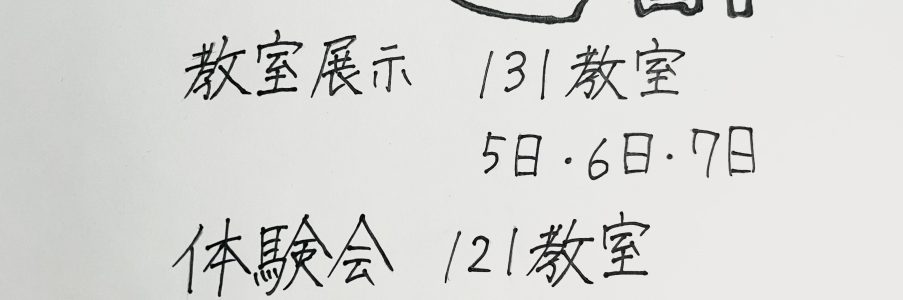 教室展示 131教室
5日・6日・7日
体験会 121教室